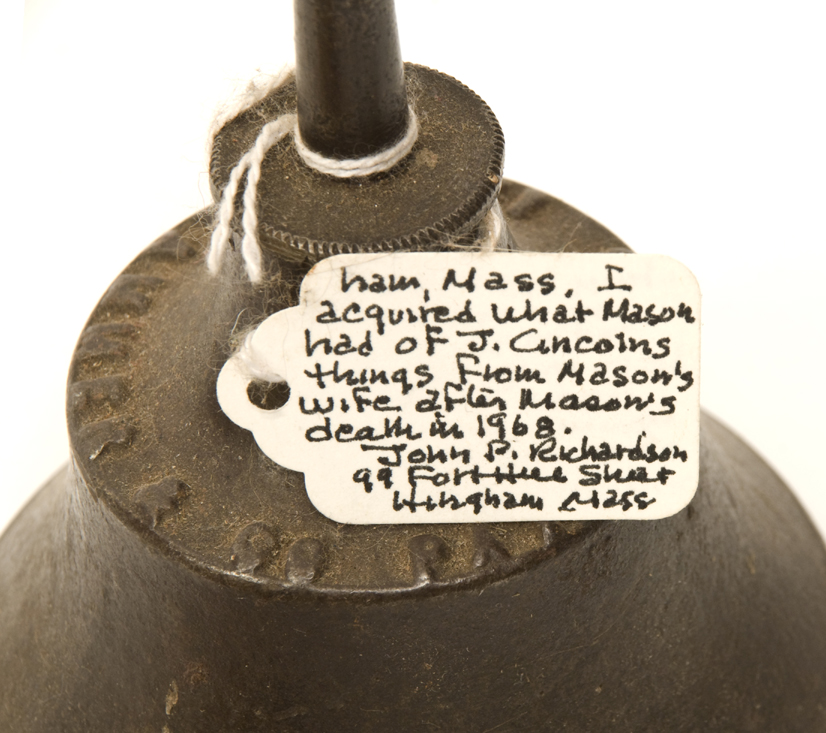 ham, Mass. I
acquired what Mason
had of J. Lincolns
things from Mason's
wife after Mason's
death in 1968.
John P. Richardson
99 Fort Hill Street
Hingham Mass
CO PAT